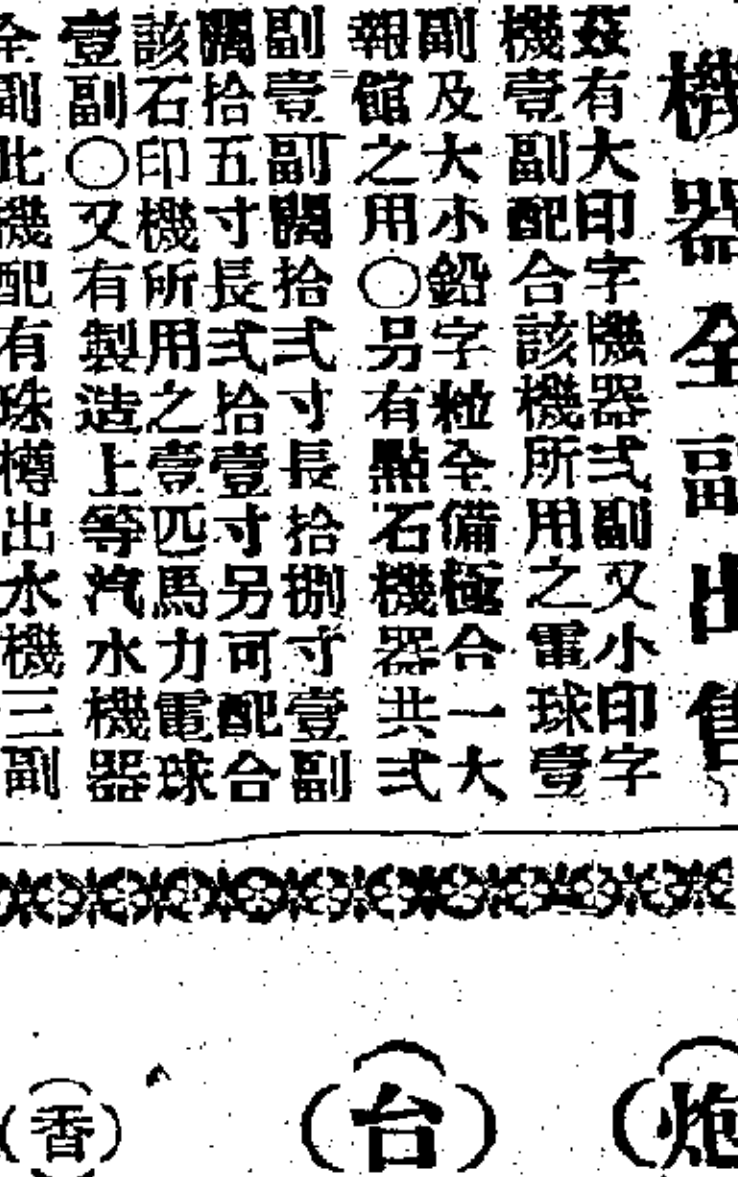 機器全副出售
茲有大印字機器弍副又小印字
機壹副配合該機所用之電球壹
副及大小鉛字粒全備極合一大
報館之用〇另有點石機器共弍
副壹副闊拾弍寸長拾捌寸壹副
闊拾五寸長弍拾壹寸另可配合
該石印機所用之壹匹馬力電球
壹副〇又有製造上等汽水機器
全副此機配有珠樽出水機三副
(炮
(台)
(香)